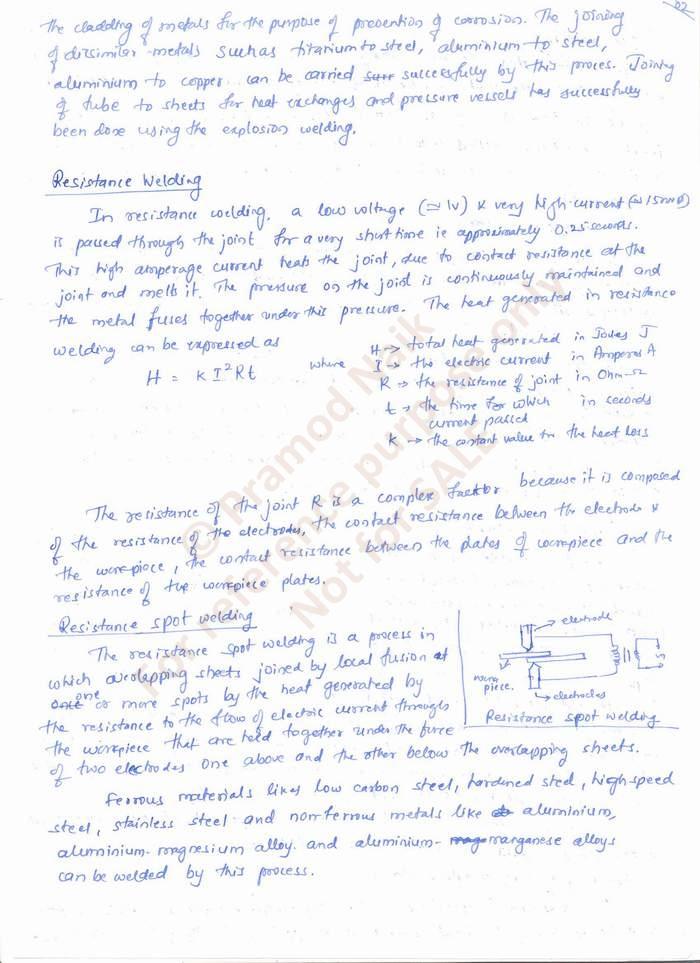 02
the cladding of metals for the purpose of prevention of corrosion. The joining
of dissimilar metals such as titanium to steel, aluminium to steel,
aluminium to copper can be carried successfully by this proces. Joining
of tube to sheets for heat exchanges and pressure vessels has successfully
been done using the explosion welding.
Resistance Welding
In resistance welding, a low voltage (≃ 1V) & very high current (≃ 15000A)
is passed through the joint for a very short time ie approximately 0.25 seconds.
This high amperage current heats the joint, due to contact resistance at the
joint and melts it. The pressure on the joint is continuously maintained and
the metal fuses together under this pressure. The heat generated in resistance
welding can be expressed as
H = K I²Rt
where
H → total heat generated in Joules J
I → the electric current in Amperes A
R → the resistance of joint in Ohm-Ω
t → the time for which in seconds
current passed
K → the constant value for the heat loss
The resistance of the joint R is a complex factor because it is composed
of the resistance of the electrodes, the contact resistance between the electrode &
the workpiece, the contact resistance between the plates of workpiece and the
resistance of the workpiece plates.
Resistance spot welding
The resistance spot welding is a process in
which overlapping sheets joined by local fusion at
one or more spots by the heat generated by
the resistance to the flow of electric current through
the workpiece that are held together under the force
of two electrodes one above and the other below the overlapping sheets.
→ electrode
work
piece.
→ electrodes
Resistance spot welding
Ferrous materials likes low carbon steel, hardened steel, high speed
steel, stainless steel and nonferrous metals like aluminium,
aluminium-magnesium alloy and aluminium-manganese alloys
can be welded by this process.
© Pramod Naik
for reference purpose only
Not for SALE